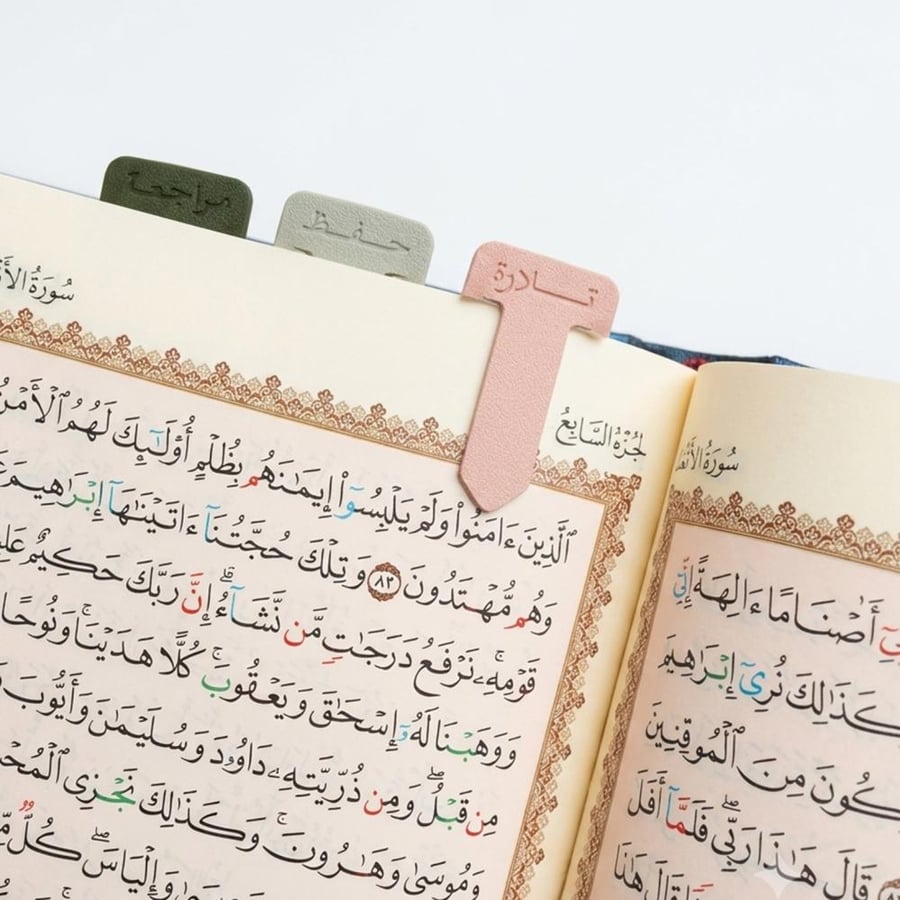 مراجعة
حفظ
تـــادرة
سُورَةُ
لجُزْءُ السَّابِعُ
سُورَةُ
أَصْنَامًا ءَالِهَةً إِنِّىٓ
كَذَٰلِكَ نُرِىٓ إِبْرَٰهِيمَ
مِنَ ٱلْمُوقِنِينَ
قَالَ هَٰذَا رَبِّى ۖ فَلَمَّآ أَفَلَ
قَالَ هَٰذَا
ٱلَّذِينَ ءَامَنُوا۟ وَلَمْ يَلْبِسُوٓا۟ إِيمَٰنَهُم بِظُلْمٍ أُو۟لَٰٓئِكَ لَهُمُ ٱلْأَمْنُ
وَهُم مُّهْتَدُونَ ٨٢ وَتِلْكَ حُجَّتُنَآ ءَاتَيْنَٰهَآ إِبْرَٰهِيمَ
قَوْمِهِۦ ۚ نَرْفَعُ دَرَجَٰتٍ مَّن نَّشَآءُ ۗ إِنَّ رَبَّكَ حَكِيمٌ
وَوَهَبْنَا لَهُۥٓ إِسْحَٰقَ وَيَعْقُوبَ ۚ كُلًّا هَدَيْنَا ۚ وَنُوحًا
مِن قَبْلُ ۖ وَمِن ذُرِّيَّتِهِۦ دَاوُۥدَ وَسُلَيْمَٰنَ وَأَيُّوبَ
وَمُوسَىٰ وَهَٰرُونَ ۚ وَكَذَٰلِكَ نَجْزِى
وَإِلْيَاسَ ۖ كُلٌّ